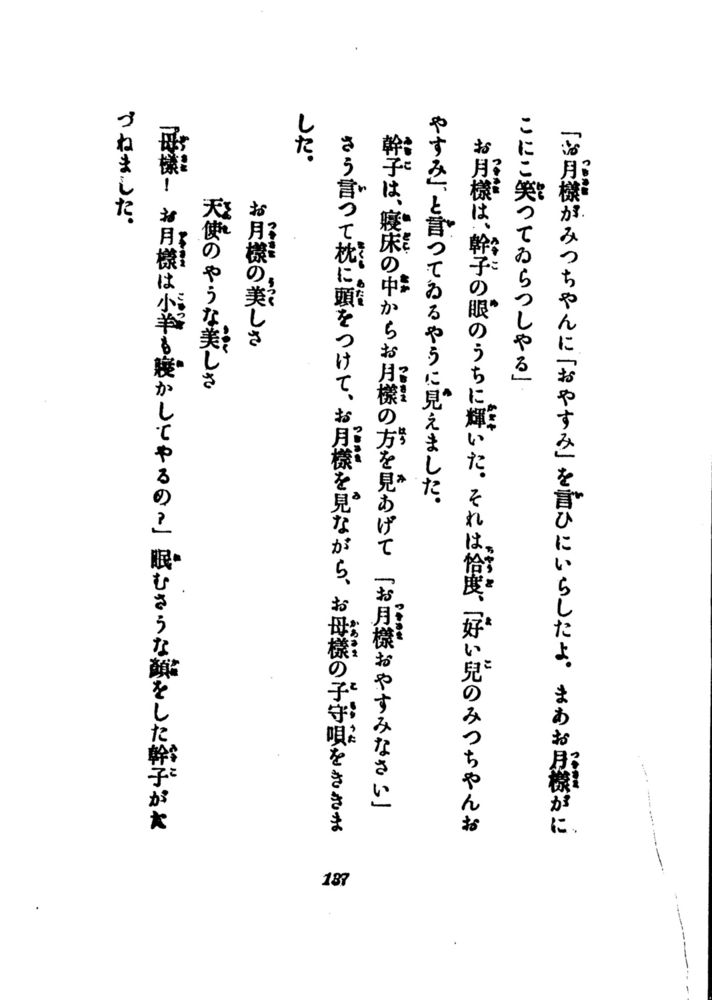 「お月様がみつちやんに「おやすみ」を言ひにいらしたよ。まあお月様がに
こにこ笑つてゐらつしやる」
お月様は、幹子の眼のうちに輝いた。それは恰度、「好い兒のみつちやんお
やすみ」と言つてゐるやうに見えました。
幹子は、寝床の中からお月様の方を見あげて「お月様おやすみなさい」
さう言つて枕に頭をつけて、お月様を見ながら、お母様の子守唄をききま
した。
お月様の美しさ
天使のやうな美しさ
「母様！お月様は小羊も寝かしてやるの？」眠むさうな顔をした幹子がた
づねました。
187